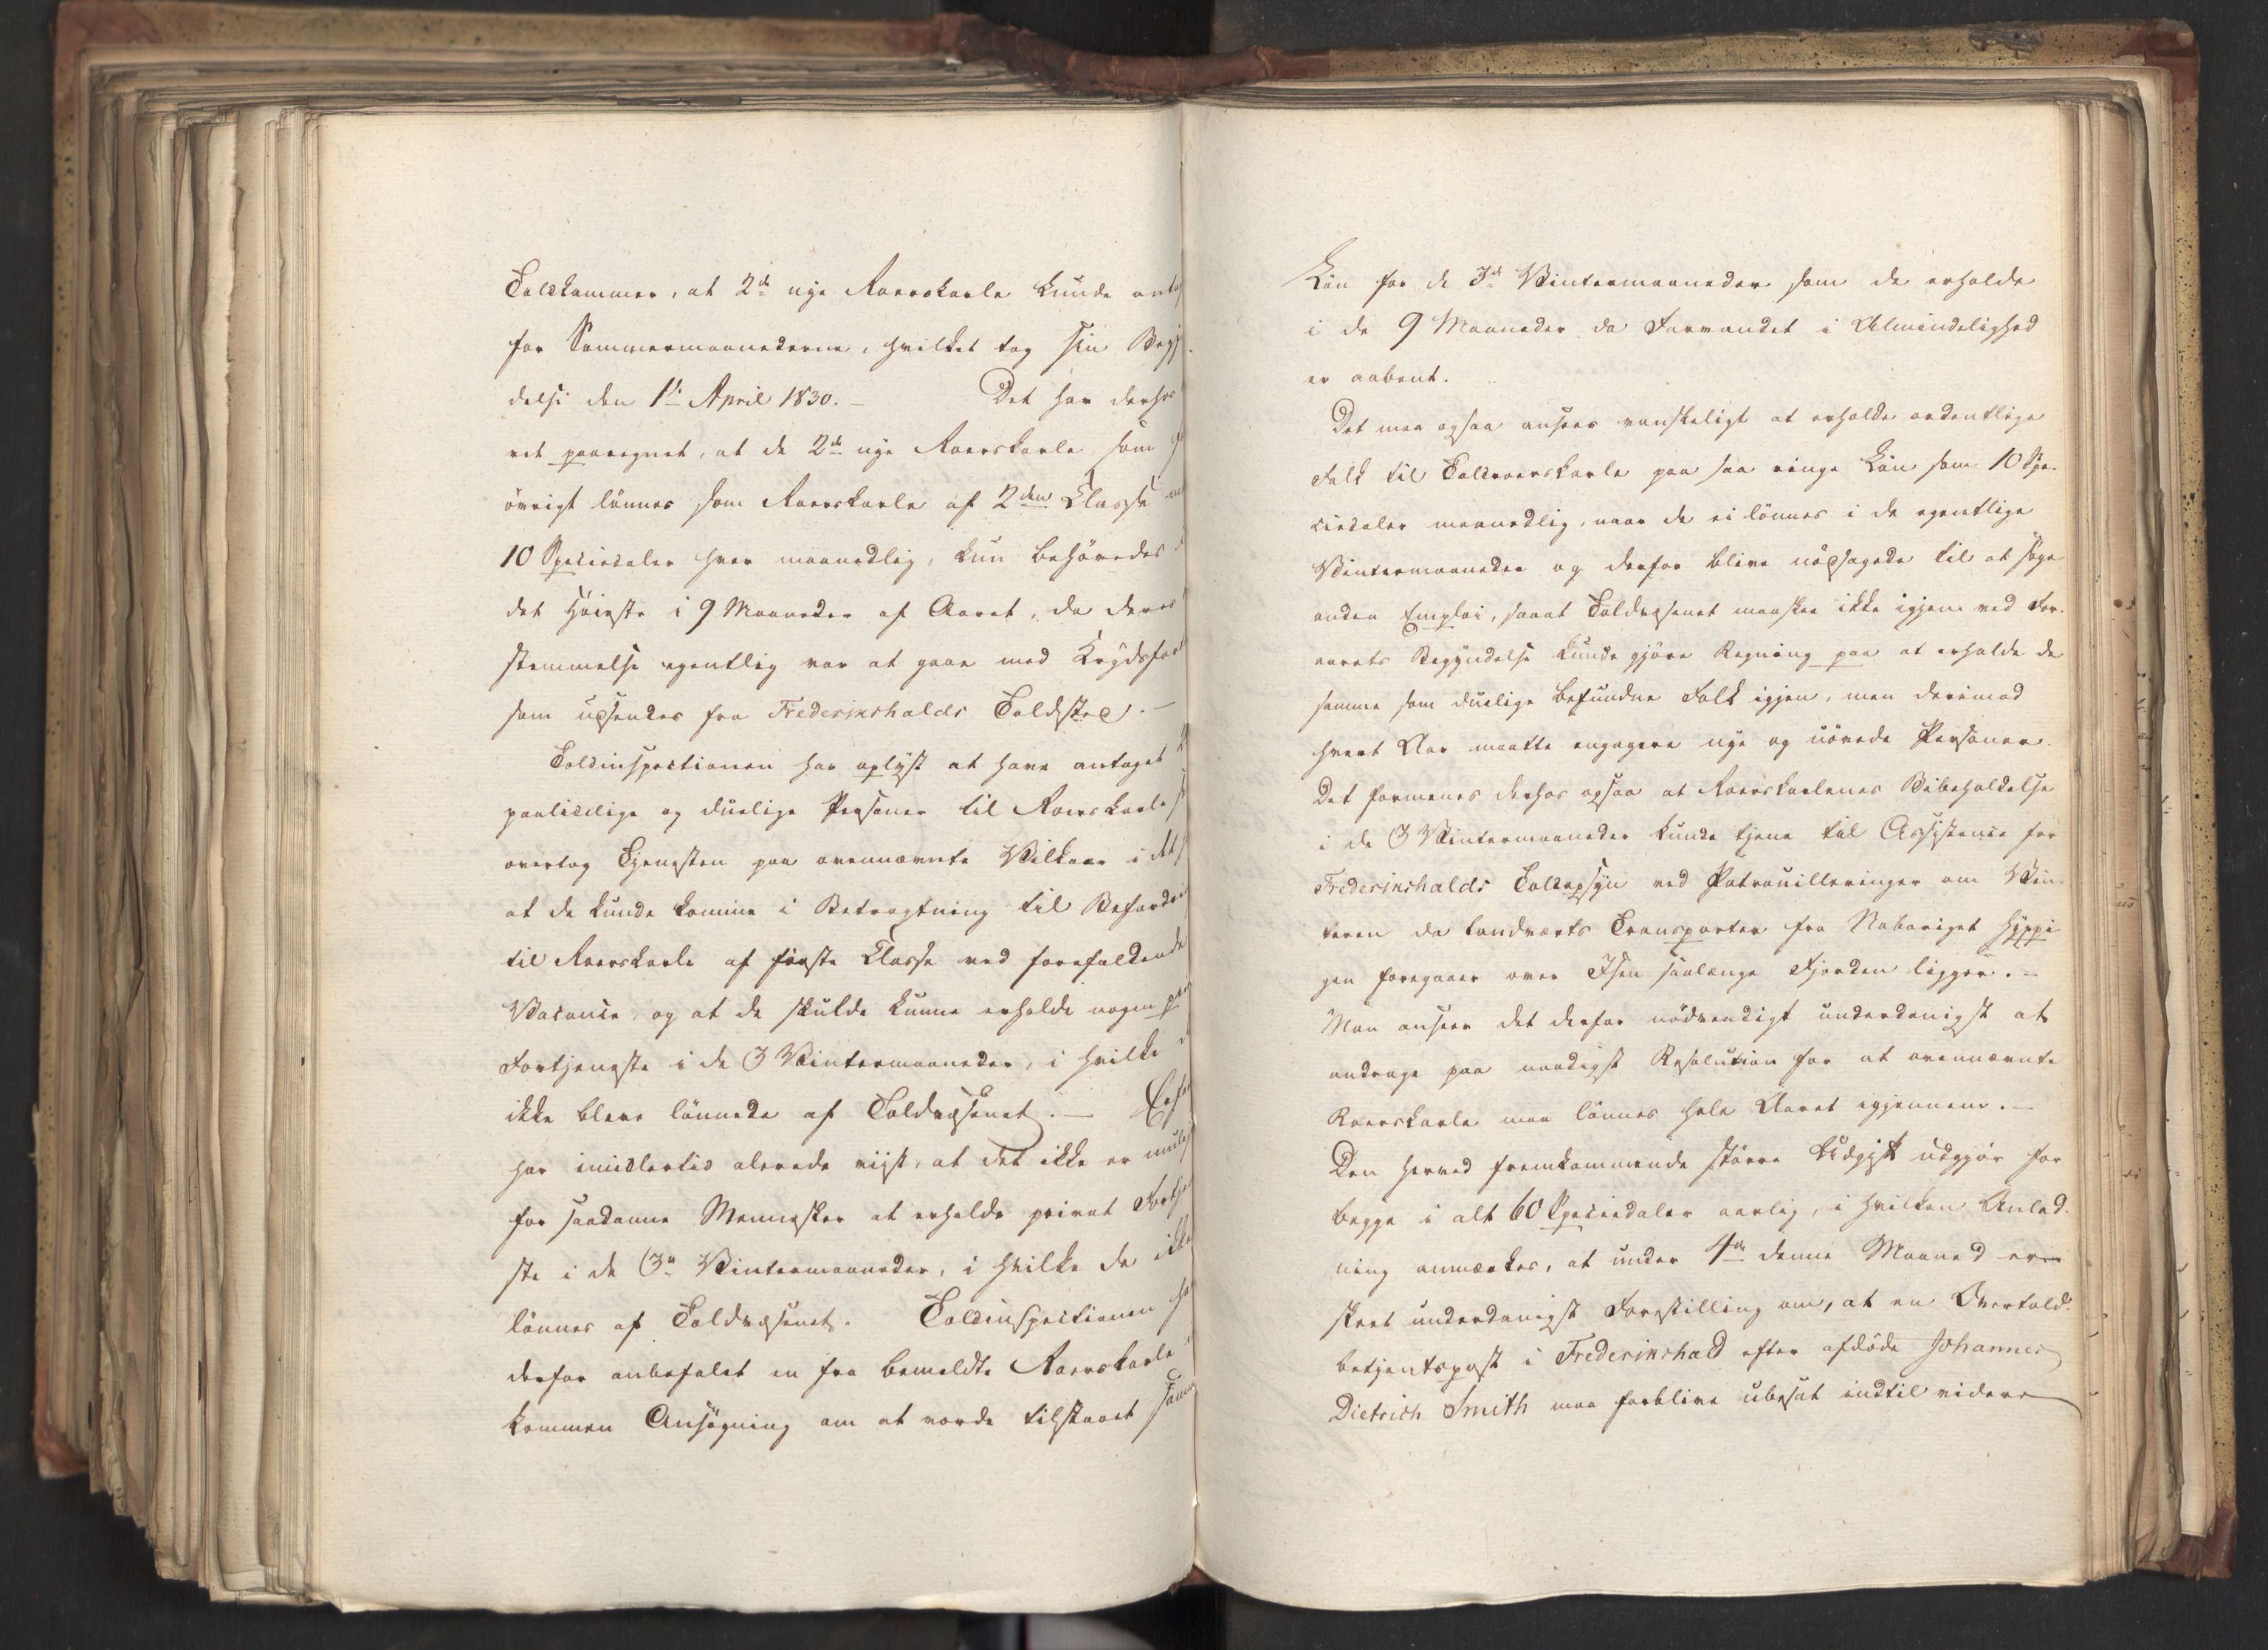 Toldkammer, at 2de nye Roerskarle kunde anta
for Sommermaanederne, hvilket tog sin Begyn
delse den 1ste April 1830. – Det har derhos
ret paaregnet, at de 2de nye Roerskarle som
övrigt lønnes som Roerskarle af 2den Classe
10 Speciedaler hver maanedlig, kun behövedes
det Höieste i 9 Maaneder af Aaret, da deres
stemmelse egentlig var at gaae med Krydsfart
som udsendes fra Frederikshalds Toldsted. –
Toldinspectionen har oplyst at have antaget
paalidelige og duelige Personer til Roerskarle
overtog Tjenesten paa ovennævnte Vilkaar i det
at de kunde komme i Betragtning til Befordr
til Roerskarle af første Classe ved forefaldende
Vacance, og at de skulde kunne erholde nogen
Fortjeneste i de 3 Vintermaaneder, i hvilke
ikke bleve lönnede af Toldvæsenet. – Erfa
har imidlertid allerede viist, at det ikke er mul
for saadanne Mennesker at erholde privat Fortje
ste i de 3de Vintermaaneder, i hvilke de ikke
lönnes af Toldvæsenet. Toldinspectionen ha
derfor anbefalet en fra bemeldte Roerskarle
kommen Ansögning om at vorde tilstaaet samme
Lön for de 3de Vintermaaneder som de erholde
i de 9 Maaneder da Farvandet i Almindelighed
er aabent.
Det maa ogsaa ansees vanskeligt at erholde ordentlige
Folk til Toldroerskarle paa saa ringe Lön som 10 Spe-
ciedaler maanedlig, naar de ei lönnes i de egentlige
Vintermaaneder og derfor blive nödsagede til at söge
anden Emploi, saaat Toldvæsenet maaskee ikke igjen ved For-
aarets Begyndelse kunde gjöre Regning paa at erholde de
samme som duelige befundne Folk igjen, men derimod
hvert Aar maatte engagere nye og uövede Personer.
Det formenes derhos ogsaa at Roerskarlenes Bibeholdelse
i de 3 Vintermaaneder kunde tjene til Assistence for
Frederikshalds Toldopsyn ved Patrouilleringer om Vin-
teren da landværts Transporter fra Naboriget hyppi
gen foregaaer over Isen saalænge Fjorden ligger. –
Man anseer det derfor nödvendigt underdanigst at
andrage paa naadigst Resolution for at ovennævnte
Roerskarle maa lönnes hele Aaret igjennem. –
Den herved fremkommende större Udgift udgjör for
begge i alt 60 Speciedaler aarlig, i hvilken Anled-
ning anmærkes, at under 4de denne Maaned er
skeet underdanigst Forestilling om, at en Overtold-
betjentspost i Frederikshald efter afdöde Johannes
Dietrich Smith maa forblive ubesat indtil videre